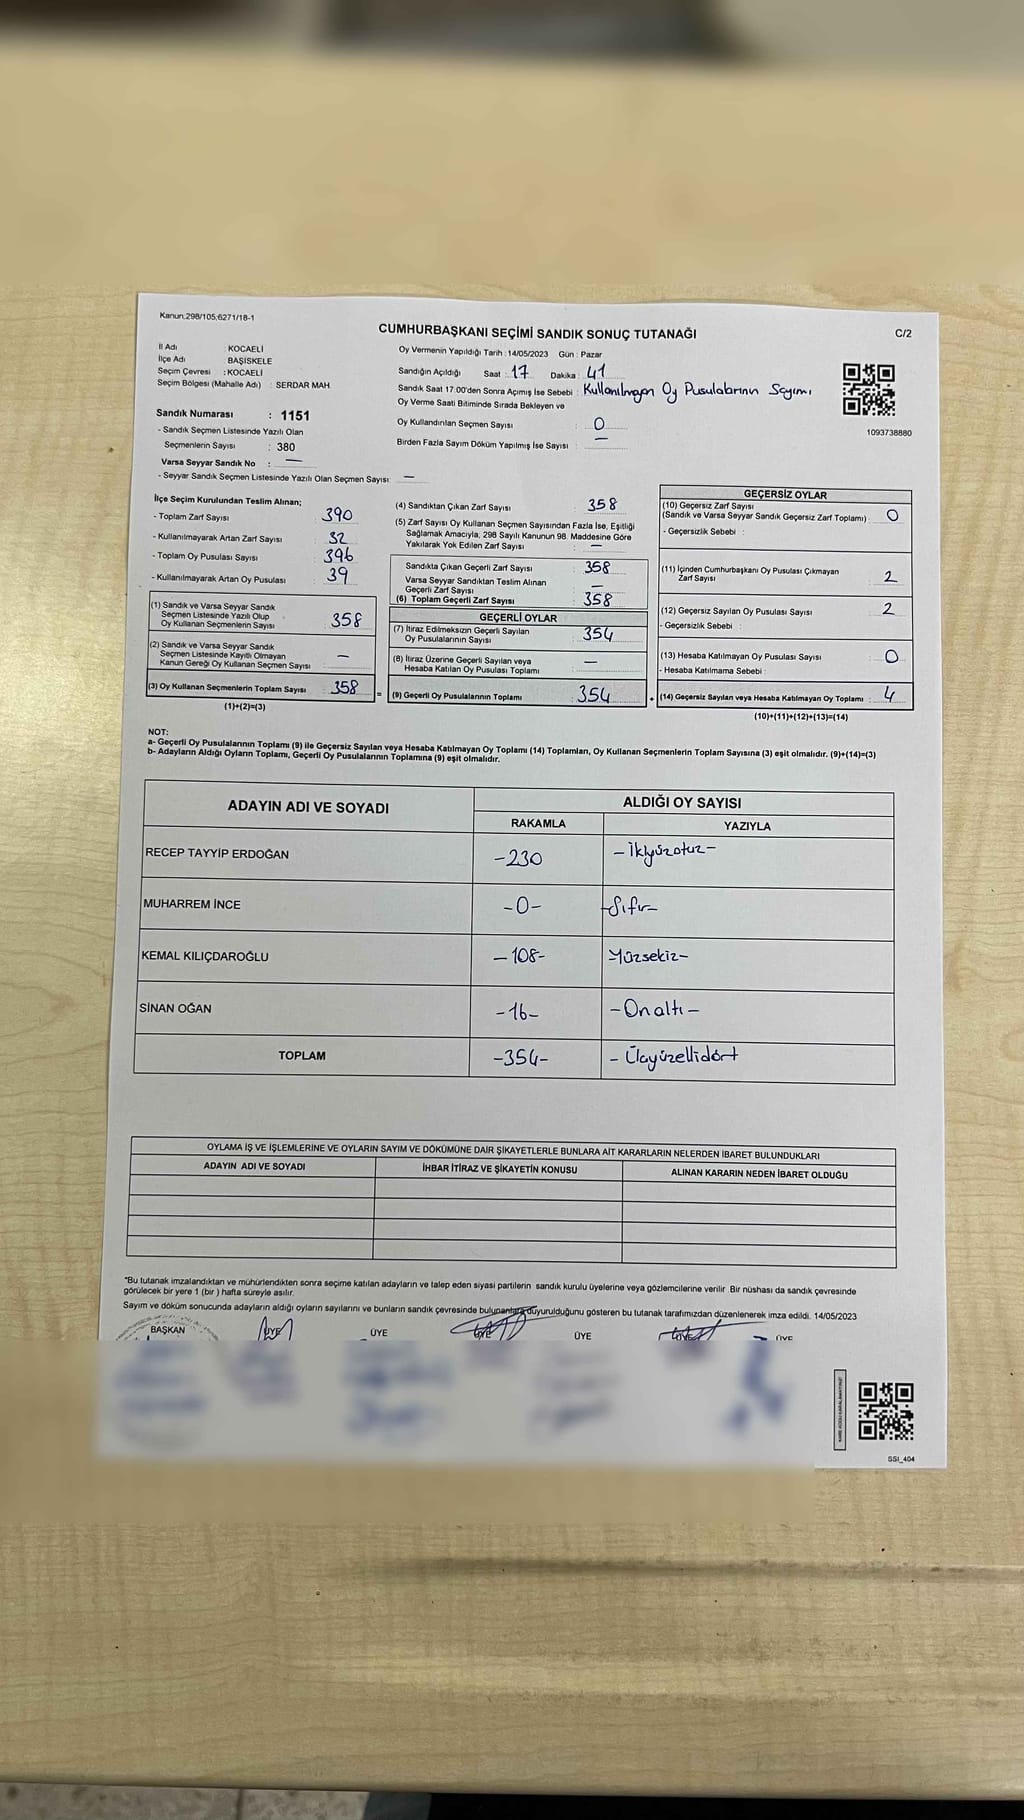 Kanun:298/105,6271/18-1
CUMHURBAŞKANI SEÇİMİ SANDIK SONUÇ TUTANAĞI
C/2
İl Adı KOCAELİ
İlçe Adı BAŞİSKELE
Seçim Çevresi : KOCAELİ
Seçim Bölgesi (Mahalle Adı) : SERDAR MAH.
Oy Vermenin Yapıldığı Tarih : 14/05/2023 Gün : Pazar
Sandığın Açıldığı Saat : 17 Dakika : 41
Sandık Saat 17:00'den Sonra Açılmış İse Sebebi : Kullanılmayan Oy Pusulalarının Sayımı
Oy Verme Saati Bitiminde Sırada Bekleyen ve
Oy Kullandırılan Seçmen Sayısı : 0
Birden Fazla Sayım Döküm Yapılmış İse Sayısı : —
1093738880
Sandık Numarası : 1151
- Sandık Seçmen Listesinde Yazılı Olan
Seçmenlerin Sayısı : 380
Varsa Seyyar Sandık No : —
- Seyyar Sandık Seçmen Listesinde Yazılı Olan Seçmen Sayısı: —
İlçe Seçim Kurulundan Teslim Alınan;
- Toplam Zarf Sayısı 390
- Kullanılmayarak Artan Zarf Sayısı 32
- Toplam Oy Pusulası Sayısı 396
- Kullanılmayarak Artan Oy Pusulası 39
(1) Sandık ve Varsa Seyyar Sandık
Seçmen Listesinde Yazılı Olup
Oy Kullanan Seçmenlerin Sayısı 358
(2) Sandık ve Varsa Seyyar Sandık
Seçmen Listesinde Kayıtlı Olmayan
Kanun Gereği Oy Kullanan Seçmen Sayısı —
(3) Oy Kullanan Seçmenlerin Toplam Sayısı 358
(1)+(2)=(3)
(4) Sandıktan Çıkan Zarf Sayısı : 358
(5) Zarf Sayısı Oy Kullanan Seçmen Sayısından Fazla İse, Eşitliği
Sağlamak Amacıyla, 298 Sayılı Kanunun 98. Maddesine Göre
Yakılarak Yok Edilen Zarf Sayısı : —
Sandıkta Çıkan Geçerli Zarf Sayısı : 358
Varsa Seyyar Sandıktan Teslim Alınan
Geçerli Zarf Sayısı : —
(6) Toplam Geçerli Zarf Sayısı : 358
GEÇERLİ OYLAR
(7) İtiraz Edilmeksizin Geçerli Sayılan
Oy Pusulalarının Sayısı : 354
(8) İtiraz Üzerine Geçerli Sayılan veya
Hesaba Katılan Oy Pusulası Toplamı : —
= (9) Geçerli Oy Pusulalarının Toplamı : 354
GEÇERSİZ OYLAR
(10) Geçersiz Zarf Sayısı
(Sandık ve Varsa Seyyar Sandık Geçersiz Zarf Toplamı) : 0
- Geçersizlik Sebebi :
(11) İçinden Cumhurbaşkanı Oy Pusulası Çıkmayan
Zarf Sayısı : 2
(12) Geçersiz Sayılan Oy Pusulası Sayısı : 2
- Geçersizlik Sebebi :
(13) Hesaba Katılmayan Oy Pusulası Sayısı : 0
- Hesaba Katılmama Sebebi :
+ (14) Geçersiz Sayılan veya Hesaba Katılmayan Oy Toplamı : 4
(10)+(11)+(12)+(13)=(14)
NOT:
a- Geçerli Oy Pusulalarının Toplamı (9) ile Geçersiz Sayılan veya Hesaba Katılmayan Oy Toplamı (14) Toplamları, Oy Kullanan Seçmenlerin Toplam Sayısına (3) eşit olmalıdır. (9)+(14)=(3)
b- Adayların Aldığı Oyların Toplamı, Geçerli Oy Pusulalarının Toplamına (9) eşit olmalıdır.
ADAYIN ADI VE SOYADI ALDIĞI OY SAYISI
RAKAMLA YAZIYLA
RECEP TAYYİP ERDOĞAN -230 -İkiyüzotuz-
MUHARREM İNCE -0- -Sıfır-
KEMAL KILIÇDAROĞLU -108- -Yüzsekiz-
SİNAN OĞAN -16- -Onaltı-
TOPLAM -354- -Üçyüzellidört
OYLAMA İŞ VE İŞLEMLERİNE VE OYLARIN SAYIM VE DÖKÜMÜNE DAİR ŞİKAYETLERLE BUNLARA AİT KARARLARIN NELERDEN İBARET BULUNDUKLARI
ADAYIN ADI VE SOYADI İHBAR İTİRAZ VE ŞİKAYETİN KONUSU ALINAN KARARIN NEDEN İBARET OLDUĞU
*Bu tutanak imzalandıktan ve mühürlendikten sonra seçime katılan adayların ve talep eden siyasi partilerin sandık kurulu üyelerine veya gözlemcilerine verilir. Bir nüshası da sandık çevresinde
görülecek bir yere 1 (bir ) hafta süreyle asılır.
Sayım ve döküm sonucunda adayların aldığı oyların sayılarını ve bunların sandık çevresinde bulunanlara duyurulduğunu gösteren bu tutanak tarafımızdan düzenlenerek imza edildi. 14/05/2023
BAŞKAN ÜYE ÜYE ÜYE ÜYE ÜYE ÜYE
SSI_404